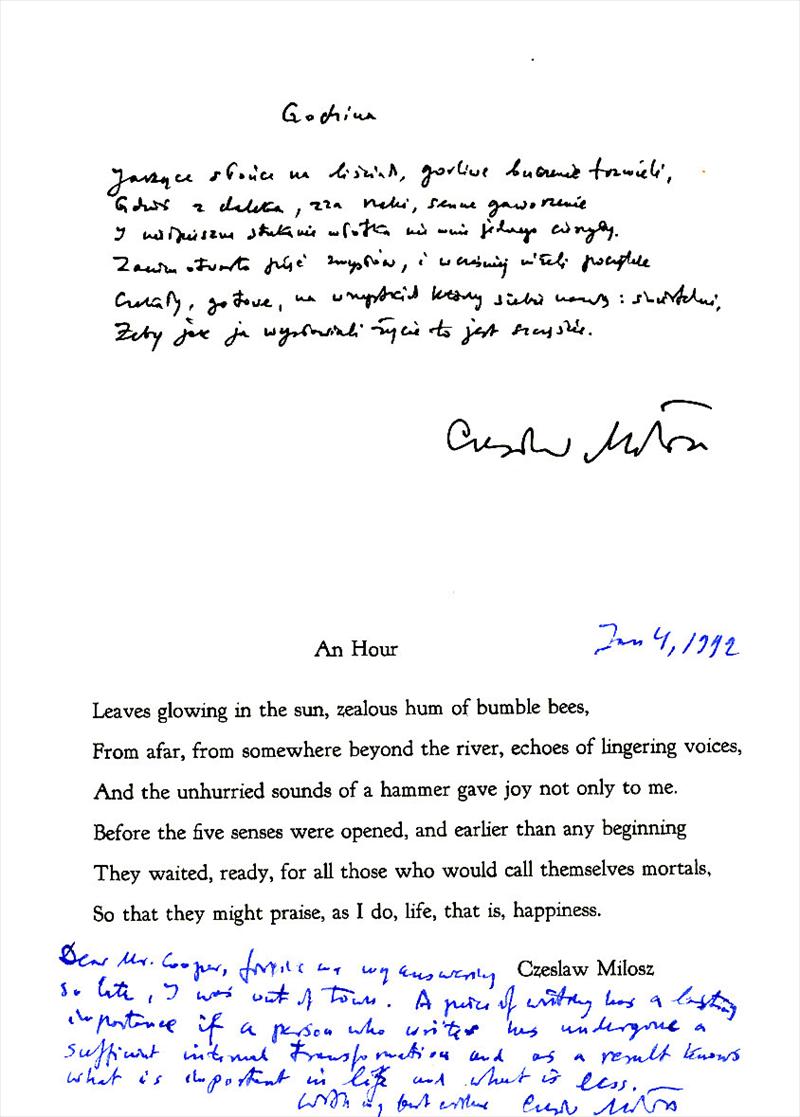 Godzina
Jarzące słońce na liściach, gorliwe buczenie trzmieli,
Gdzieś z daleka, zza rzeki, senne gaworzenie
I niespieszne stukanie młotka nie mnie jednego cieszyły.
Zanim otwarto pięć zmysłów, i wcześniej niżeli początek
Czekały, gotowe, na wszystkich którzy siebie nazwą: śmiertelni,
Żeby jak ja wysławiali życie to jest szczęście.
Czesław Miłosz
An Hour
Jan 4, 1992
Leaves glowing in the sun, zealous hum of bumble bees,
From afar, from somewhere beyond the river, echoes of lingering voices,
And the unhurried sounds of a hammer gave joy not only to me.
Before the five senses were opened, and earlier than any beginning
They waited, ready, for all those who would call themselves mortals,
So that they might praise, as I do, life, that is, happiness.
Czeslaw Milosz
Dear Mr. Cooper, forgive me my answering
so late, I was out of town. A piece of writing has a lasting
importance if a person who writes has undergone a
sufficient internal transformation and as a result knows
what is important in life and what is less.
With my best wishes Czesław Miłosz